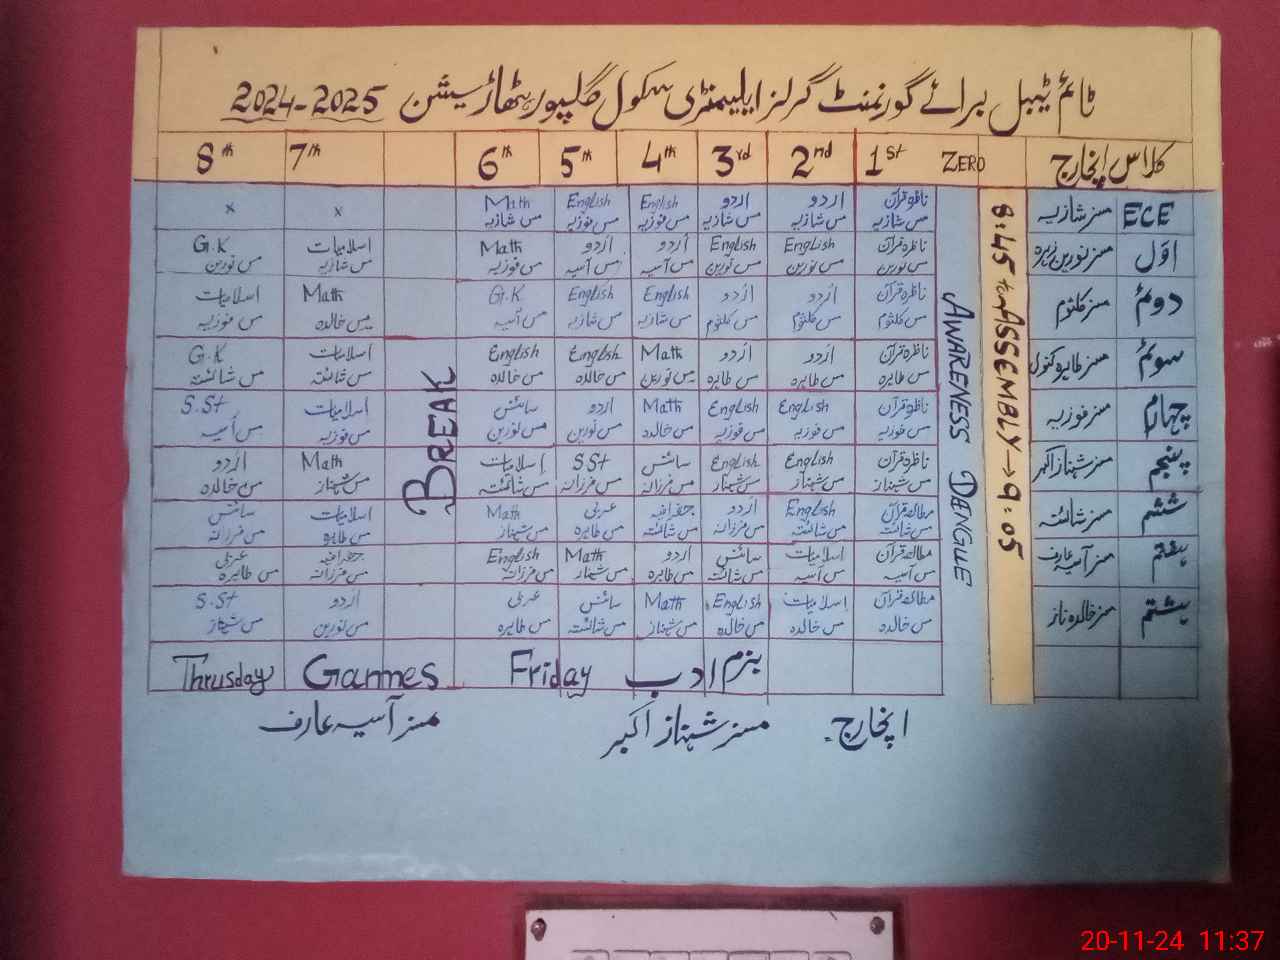 ٹائم ٹیبل برائے گورنمنٹ گرلز ایلیمنٹری سکول گلپور تھاڑ سیشن 2024-2025
کلاس انچارج ZERO 1st 2nd 3rd 4th 5th 6th 7th 8th
8:45 ASSEMBLY → 9:05
AWARENESS DAENGUE
BREAK
ECE مسز شازیہ ناظرہ قرآن اردو اردو English English Math x x
مس شازیہ مس شازیہ مس شازیہ مس فوزیہ مس فوزیہ مس شازیہ
اول ناظرہ قرآن English English اردو اردو Math اسلامیات G.K
مس نورین مس نورین مس نورین مس آسیہ مس آسیہ مس فوزیہ مس شازیہ مس نورین
دوئم مسز کلثوم ناظرہ قرآن اردو اردو English English G.K Math اسلامیات
مس کلثوم مس کلثوم مس کلثوم مس شازیہ مس شازیہ مس آسیہ مس خالدہ مس فوزیہ
سوئم مسز طاہرہ کنول ناظرہ قرآن اردو اردو Math English English اسلامیات G.K
مس طاہرہ مس طاہرہ مس طاہرہ مس نورین مس خالدہ مس خالدہ مس شائستہ مس شائستہ
چہارم مسز فوزیہ ناظرہ قرآن English English Math اردو سائنس اسلامیات S.St
مس فوزیہ مس فوزیہ مس فوزیہ مس خالدہ مس نورین مس نورین مس فوزیہ مس آسیہ
پنجم مسز شہناز اکبر ناظرہ قرآن English English سائنس SSt اسلامیات Math اردو
مس شہناز مس شہناز مس شہناز مس فرزانہ مس فرزانہ مس شائستہ مس شہناز مس خالدہ
ششم مسز شائستہ مطالعہ قرآن English اردو جغرافیہ عربی Math اسلامیات سائنس
مس شائستہ مس شائستہ مس فرزانہ مس شائستہ مس طاہرہ مس شہناز مس طاہرہ مس فرزانہ
ہفتم مسز آسیہ عارف مطالعہ قرآن اسلامیات سائنس اردو Math English جغرافیہ عربی
مس آسیہ مس آسیہ مس شائستہ مس طاہرہ مس شہناز مس فرزانہ مس فرزانہ مس طاہرہ
ہشتم مسز خالدہ ناز مطالعہ قرآن اسلامیات English Math سائنس عربی اردو S.St
مس خالدہ مس خالدہ مس خالدہ مس شہناز مس شائستہ مس طاہرہ مس نورین مس شہناز
بزم ادب Friday Games Thrusday
انچارج۔ مسز شہناز اکبر مسز آسیہ عارف
20-11-24 11:37